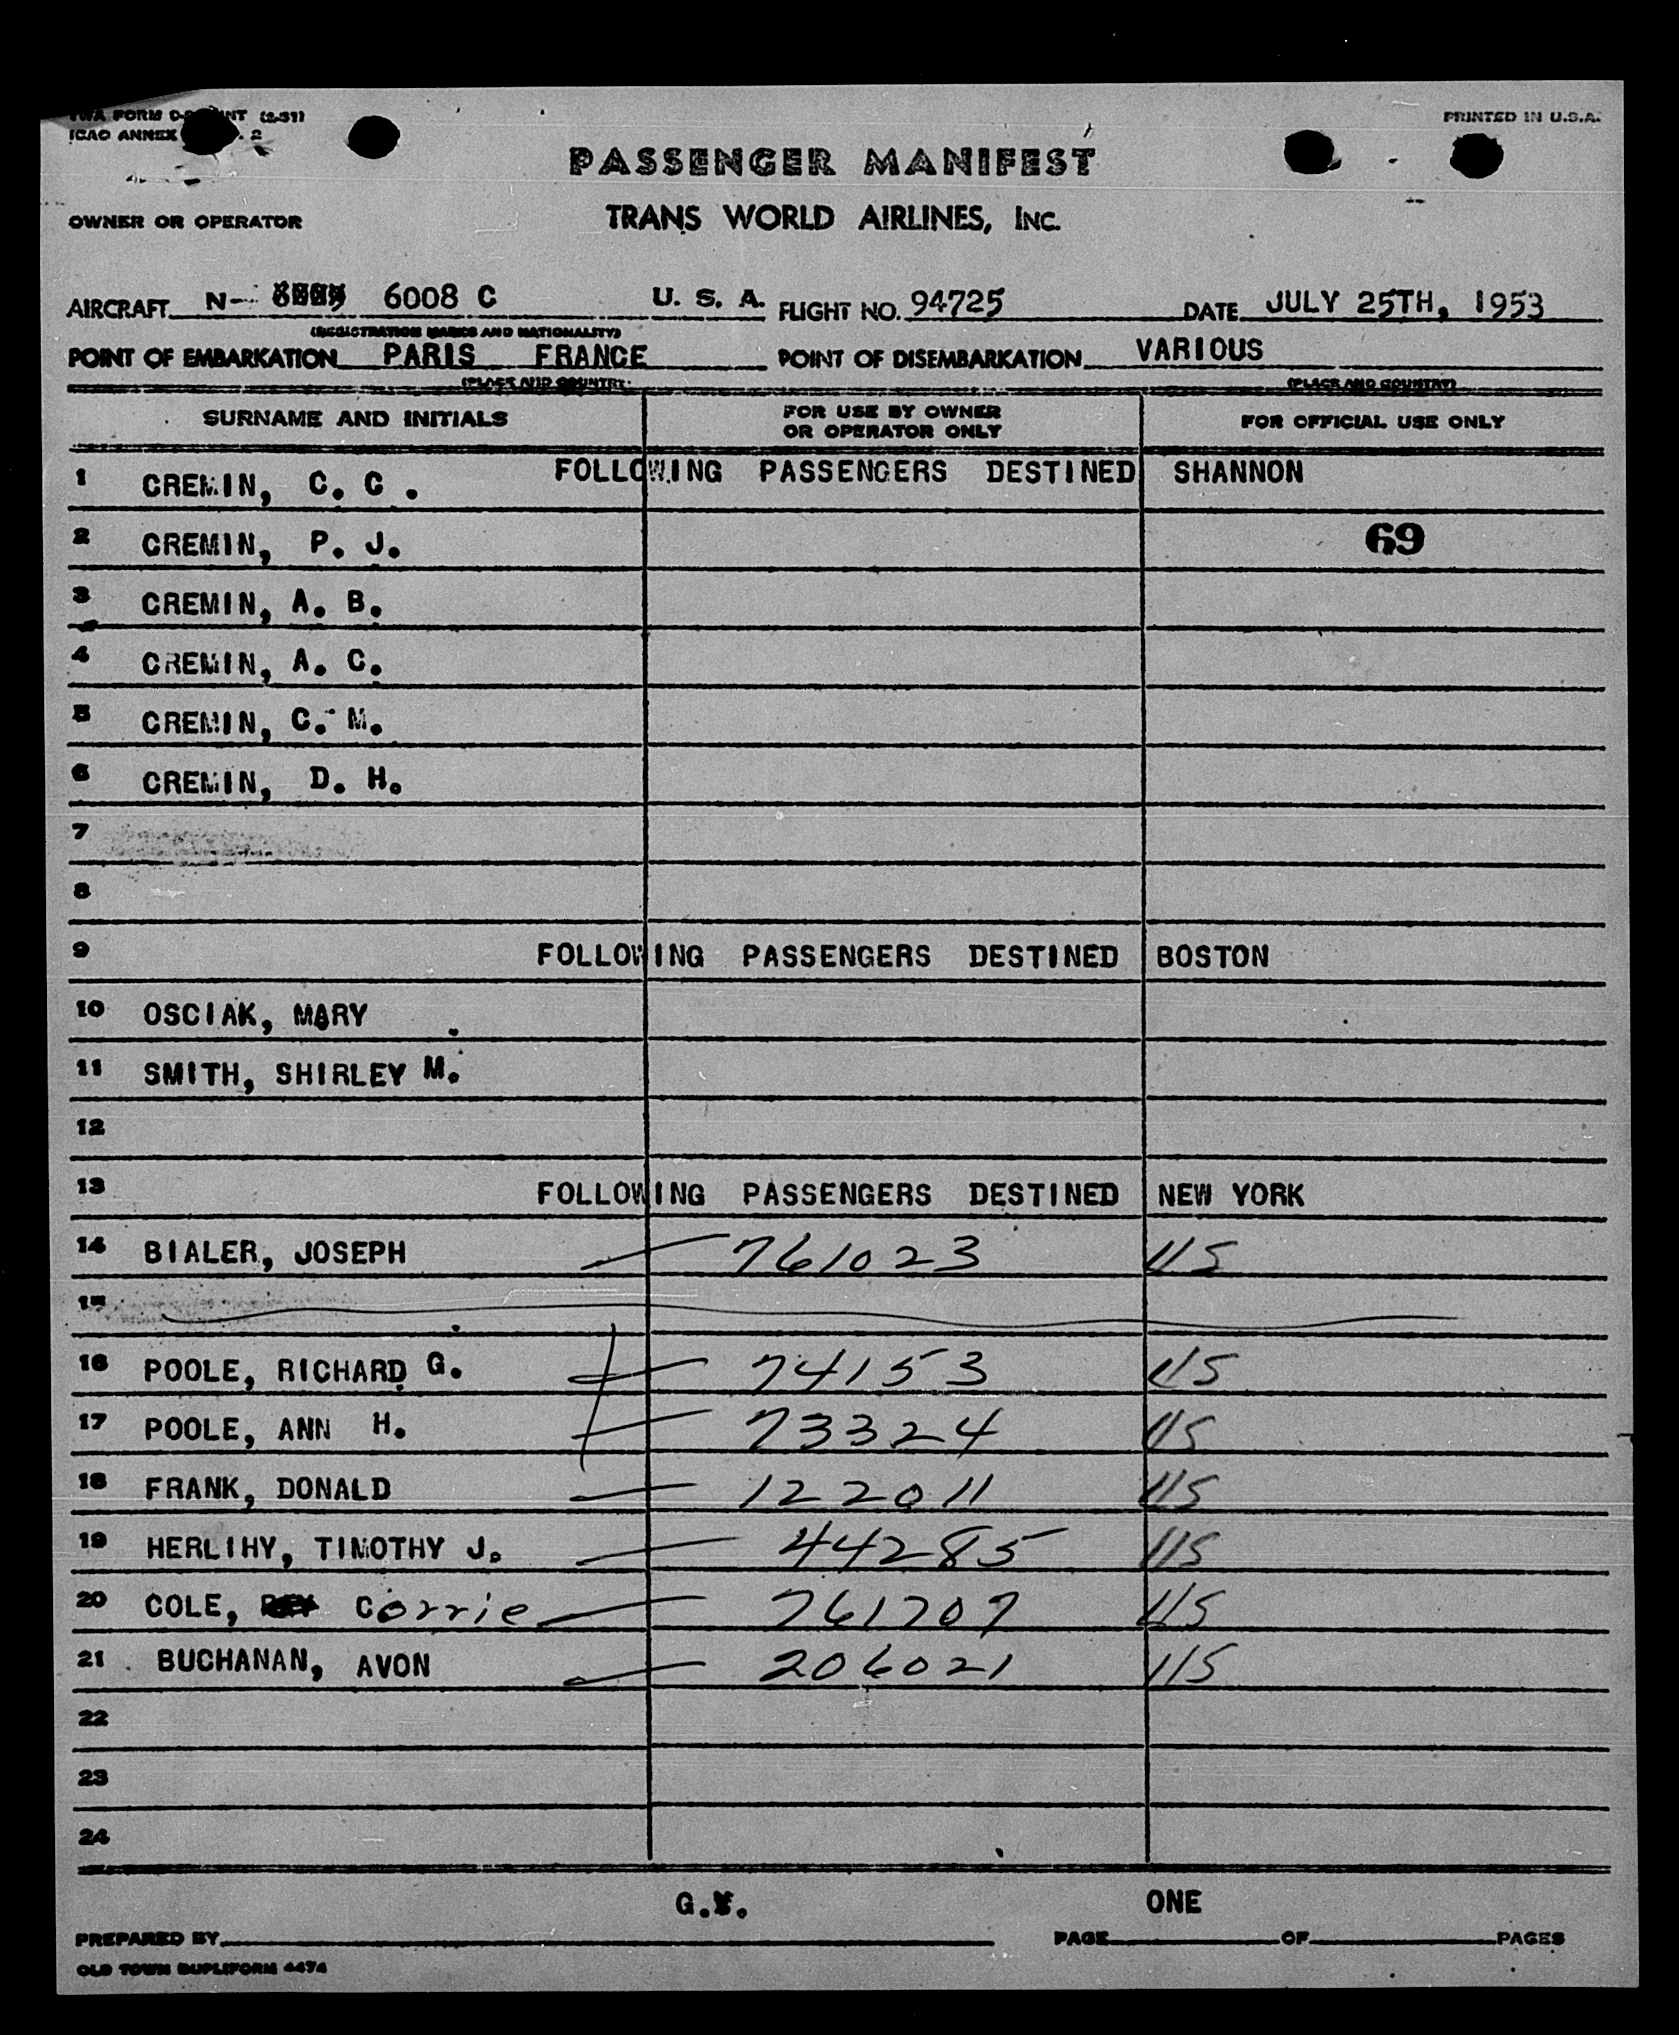 TWA FORM (2-51)
ICAO ANNEX 2
PRINTED IN U.S.A.
PASSENGER MANIFEST
OWNER OR OPERATOR TRANS WORLD AIRLINES, INC.
AIRCRAFT N- 6008 C U. S. A. FLIGHT NO. 94725 DATE JULY 25TH, 1953
(REGISTRATION MARKS AND NATIONALITY)
POINT OF EMBARKATION PARIS FRANCE POINT OF DISEMBARKATION VARIOUS
(PLACE AND COUNTRY) (PLACE AND COUNTRY)
SURNAME AND INITIALS FOR USE BY OWNER OR OPERATOR ONLY FOR OFFICIAL USE ONLY
FOLLOWING PASSENGERS DESTINED SHANNON
1 CREMIN, C. C.
2 CREMIN, P. J. 69
3 CREMIN, A. B.
4 CREMIN, A. C.
5 CREMIN, C. M.
6 CREMIN, D. H.
7
8
9 FOLLOWING PASSENGERS DESTINED BOSTON
10 OSCIAK, MARY
11 SMITH, SHIRLEY M.
12
13 FOLLOWING PASSENGERS DESTINED NEW YORK
14 BIALER, JOSEPH 761023 US
15
16 POOLE, RICHARD G. 74153 US
17 POOLE, ANN H. 73324 US
18 FRANK, DONALD 122011 US
19 HERLIHY, TIMOTHY J. 44285 US
20 COLE, Corrie 761707 US
21 BUCHANAN, AVON 206021 US
22
23
24
G. ONE
PREPARED BY PAGE OF PAGES
OLD TOWN DUPLIFORM 4474